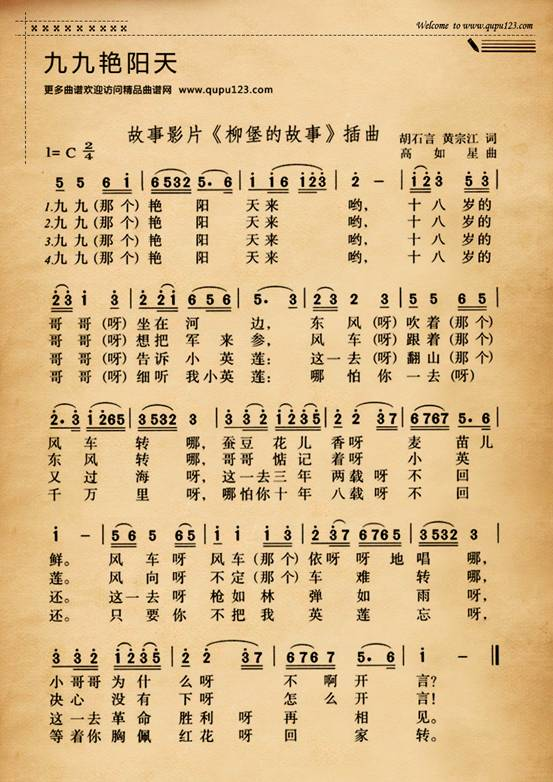 Welcome to www.qupu123.com
九九艳阳天
更多曲谱欢迎访问精品曲谱网 www.qupu123.com
故事影片《柳堡的故事》插曲
胡石言 黄宗江 词
1= C 2/4
高如星 曲
5 5 6 i | 6532 5. 6 | i i6 i23 | 2 - | i23 53 |
1.九九(那个)艳阳天来哟,十八岁的
2.九九(那个)艳阳天来哟,十八岁的
3.九九(那个)艳阳天来哟,十八岁的
4.九九(那个)艳阳天来哟,十八岁的
23 i 3 | 2 2i 656 | 5. 3 | 23 2 3 | 55 65 |
哥哥(呀)坐在河边,东风(呀)吹着(那个)
哥哥(呀)想把军来参,风车(呀)跟着(那个)
哥哥(呀)告诉小英莲:这一去(呀)翻山(那个)
哥哥(呀)细听我小英莲:哪怕你一去(呀)
2.3 i265 | 3532 3 | 223 i235 | 22 37 | 6767 5.6 |
风车转哪,蚕豆花儿香呀麦苗儿
东风转哪,哥哥惦记着呀小英
又过海呀,这一去三年两载呀不回
千万里呀,哪怕你十年八载呀不回
i - | 56 5 i | ii i3 | 237 6765 | 3532 3 |
鲜。风车呀风车(那个)依呀呀地唱哪,
莲。风向呀不定(那个)车难转哪,
还。这一去呀枪如林弹如雨呀,
还。只要你不把我英莲忘呀,
3 32 i235 | 2 2 37 | 6765 5. 6 | i - ‖
小哥哥为什么呀不啊开言?
决心没有下呀怎么开言!
这一去革命胜利呀再相见。
等着你胸佩红花呀回家转。